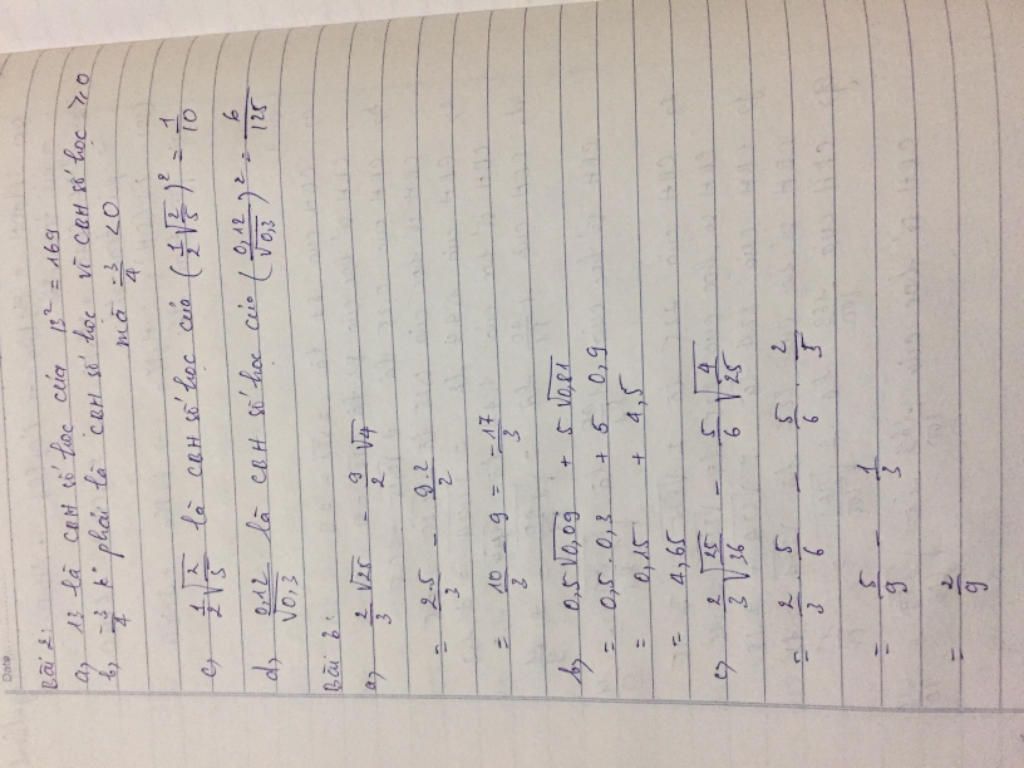 Date
Bài 2:
a, 13 là CBH số học của 13² = 169
b, -3/4 k° phải là CBH số học vì CBH số học ≥ 0
mà -3/4 < 0
c, 1/2 √(2/5) là CBH số học của (1/2 √(2/5))² = 1/10
d, 0,12/√0,3 là CBH số học của (0,12/√0,3)² = 6/125
Bài 3:
a, 2/3 √25 - 9/2 √4
= 2.5/3 - 9.2/2
= 10/3 - 9 = -17/3
b, 0,5√0,09 + 5√0,81
= 0,5.0,3 + 5 0,9
= 0,15 + 4,5
= 4,65
c, 2/3 √(25/36) - 5/6 √(4/25)
= 2/3 . 5/6 - 5/6 . 2/5
= 5/9 - 1/3
= 2/9